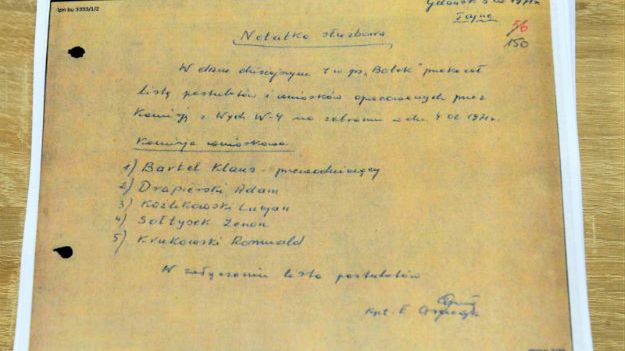 ipn bu 3333/1/2
Gdańsk 5 02 1971r
Tajne
5/6
150
Notatka służbowa
W dniu dzisiejszym t w ps. "Bolek" przekazał
listę postulatów i wniosków opracowanych przez
Komisję z Wydz W-4 na zebraniu w dn. 4 02 1971r.
Komisja wnioskowa
1) Bartel Klaus - przewodniczący
2) Drapierski Adam
3) Kozlikowski Lucjan
4) Sołtysek Zenon
5) Krukowski Romuald
W załączeniu lista postulatów
Kpt. E